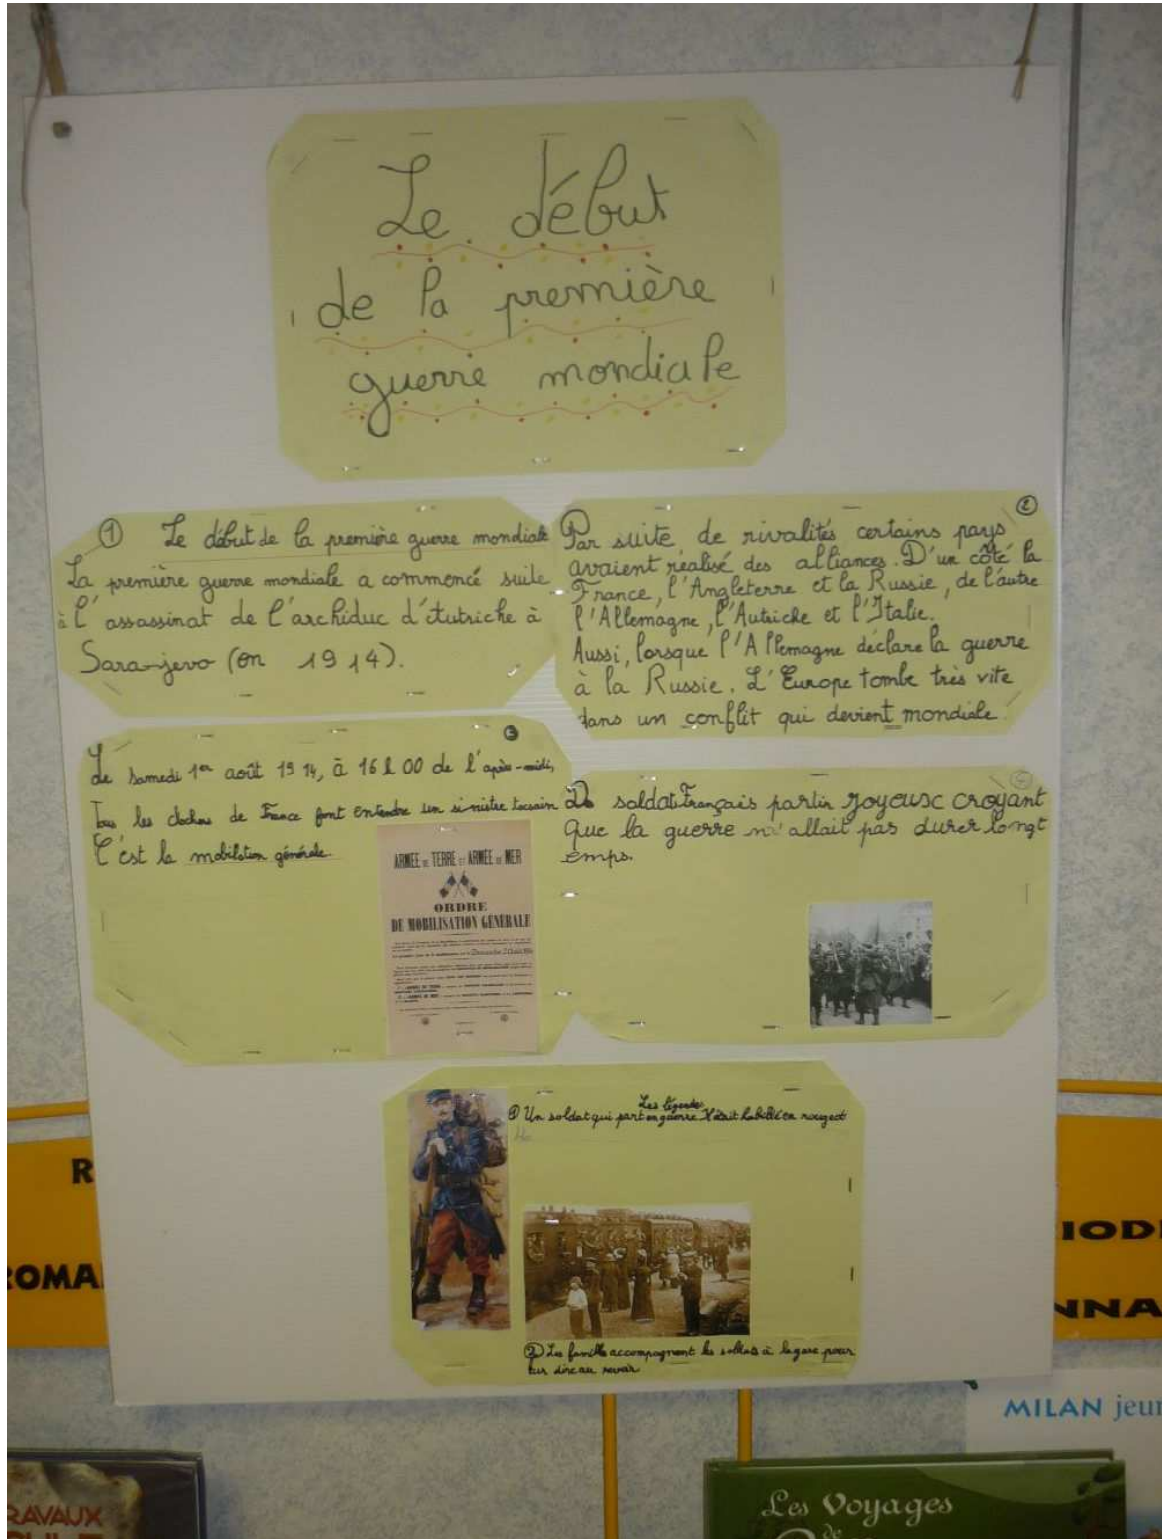 Le début
de la première
guerre mondiale
① Le début de la première guerre mondiale
La première guerre mondiale a commencé suite
à l'assassinat de l'archiduc d'Autriche à
Sarajevo (en 1914).
②
Par suite de rivalités certains pays
avaient réalisé des alliances. D'un côté la
France, l'Angleterre et la Russie, de l'autre
l'Allemagne, l'Autriche et l'Italie.
Aussi, lorsque l'Allemagne déclare la guerre
à la Russie. L'Europe tombe très vite
dans un conflit qui devient mondiale.
Le samedi 1er août 1914, à 16 h 00 de l'après-midi,
Tous les cloches de France font entendre un sinistre tocsin
C'est la mobilation générale.
ARMÉE DE TERRE ET ARMÉE DE MER
ORDRE
DE MOBILISATION GÉNÉRALE
soldat Français partir joyeux croyant
que la guerre n'allait pas durer longt
emps.
Les légende
① Un soldat qui part en guerre. Il était habillé en rouge et
② Les famille accompagnent les soldats à la gare pour
leur dire au revoir
ROMA
IODI
NNA
MILAN jeun
RAVAUX
Les Voyages
de